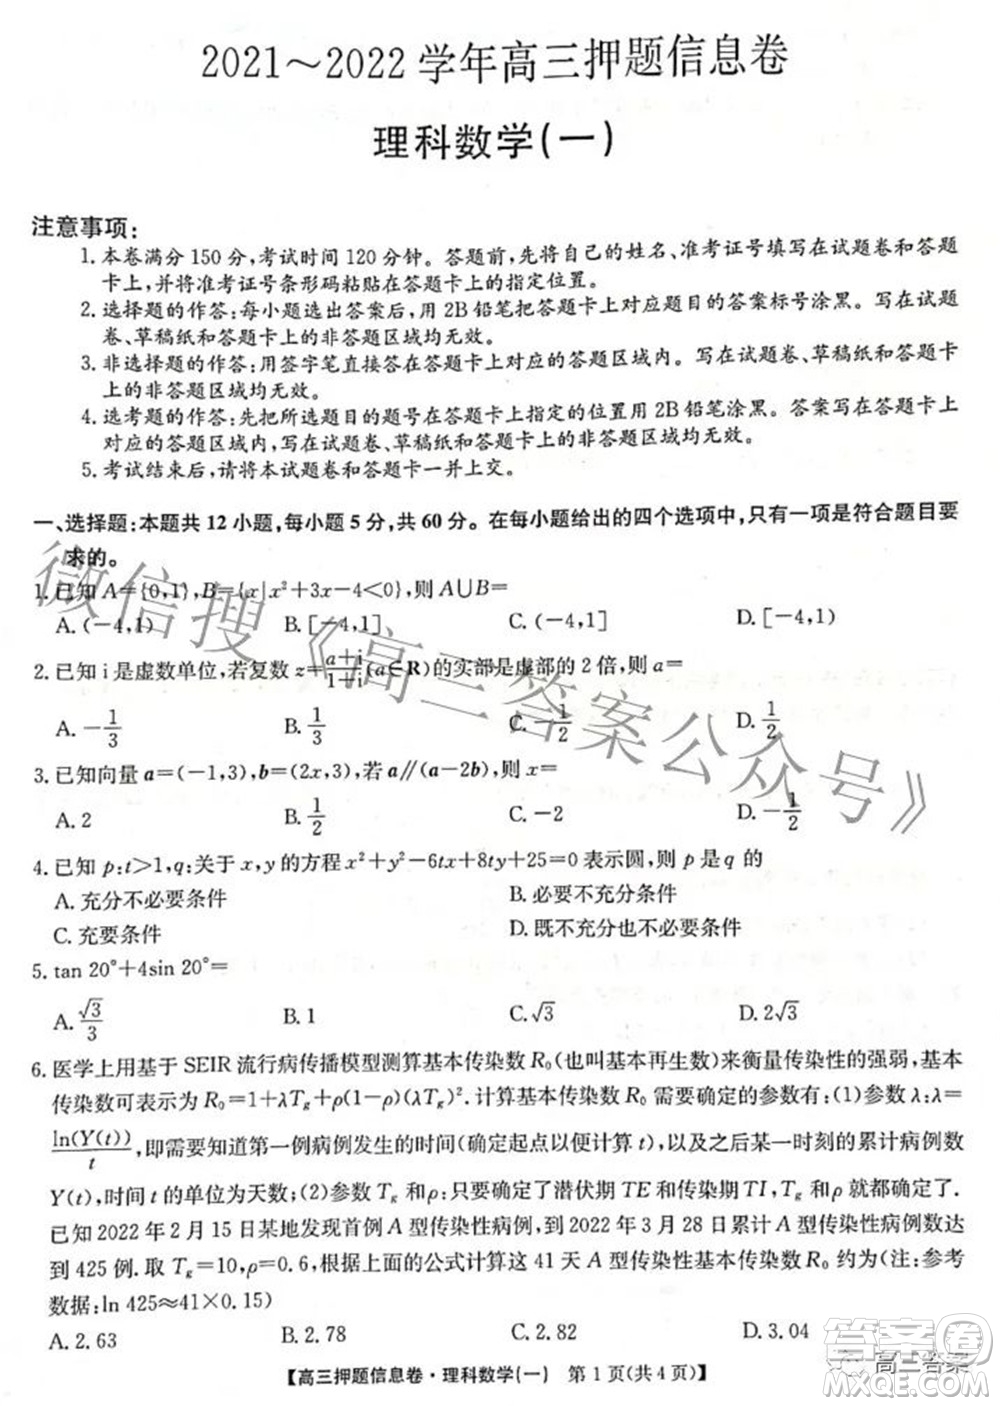 2021～2022 学年高三押题信息卷
理科数学(一)
注意事项:
1. 本卷满分 150 分,考试时间 120 分钟。答题前,先将自己的姓名、准考证号填写在试题卷和答题
卡上,并将准考证号条形码粘贴在答题卡上的指定位置。
2. 选择题的作答:每小题选出答案后,用 2B 铅笔把答题卡上对应题目的答案标号涂黑。写在试题
卷、草稿纸和答题卡上的非答题区域均无效。
3. 非选择题的作答:用签字笔直接答在答题卡上对应的答题区域内。写在试题卷、草稿纸和答题卡
上的非答题区域均无效。
4. 选考题的作答:先把所选题目的题号在答题卡上指定的位置用 2B 铅笔涂黑。答案写在答题卡上
对应的答题区域内,写在试题卷、草稿纸和答题卡上的非答题区域均无效。
5. 考试结束后,请将本试题卷和答题卡一并上交。
一、选择题:本题共 12 小题,每小题 5 分,共 60 分。在每小题给出的四个选项中,只有一项是符合题目要
求的。
1. 已知 A={0,1},B={x|x²+3x-4<0},则 A∪B=
A. (-4,1) B. [-4,1] C. (-4,1] D. [-4,1)
2. 已知 i 是虚数单位,若复数 z=\frac{a+i}{1+i}(a∈R)的实部是虚部的 2 倍,则 a=
A. -\frac{1}{3} B. \frac{1}{3} C. -\frac{1}{2} D. \frac{1}{2}
3. 已知向量 a=(-1,3),b=(2x,3),若 a∥(a-2b),则 x=
A. 2 B. \frac{1}{2} C. -2 D. -\frac{1}{2}
4. 已知 p:t>1,q:关于 x,y 的方程 x²+y²-6tx+8ty+25=0 表示圆,则 p 是 q 的
A. 充分不必要条件 B. 必要不充分条件
C. 充要条件 D. 既不充分也不必要条件
5. tan 20°+4sin 20°=
A. \frac{√3}{3} B. 1 C. √3 D. 2√3
6. 医学上用基于 SEIR 流行病传播模型测算基本传染数 R₀(也叫基本再生数)来衡量传染性的强弱,基本
传染数可表示为 R₀=1+λT_g+ρ(1-ρ)(λT_g)². 计算基本传染数 R₀ 需要确定的参数有:(1)参数 λ:λ=
\frac{ln(Y(t))}{t},即需要知道第一例病例发生的时间(确定起点以便计算 t),以及之后某一时刻的累计病例数
Y(t),时间 t 的单位为天数;(2)参数 T_g 和 ρ:只要确定了潜伏期 TE 和传染期 TI,T_g 和 ρ 就都确定了.
已知 2022 年 2 月 15 日某地发现首例 A 型传染性病例,到 2022 年 3 月 28 日累计 A 型传染性病例数达
到 425 例. 取 T_g=10,ρ=0.6,根据上面的公式计算这 41 天 A 型传染性基本传染数 R₀ 约为(注:参考
数据:ln 425≈41×0.15)
A. 2.63 B. 2.78 C. 2.82 D. 3.04
【高三押题信息卷·理科数学(一) 第 1 页(共 4 页)】
微信搜《高三答案公众号》
答案卷
高三答案
MXQE.COM